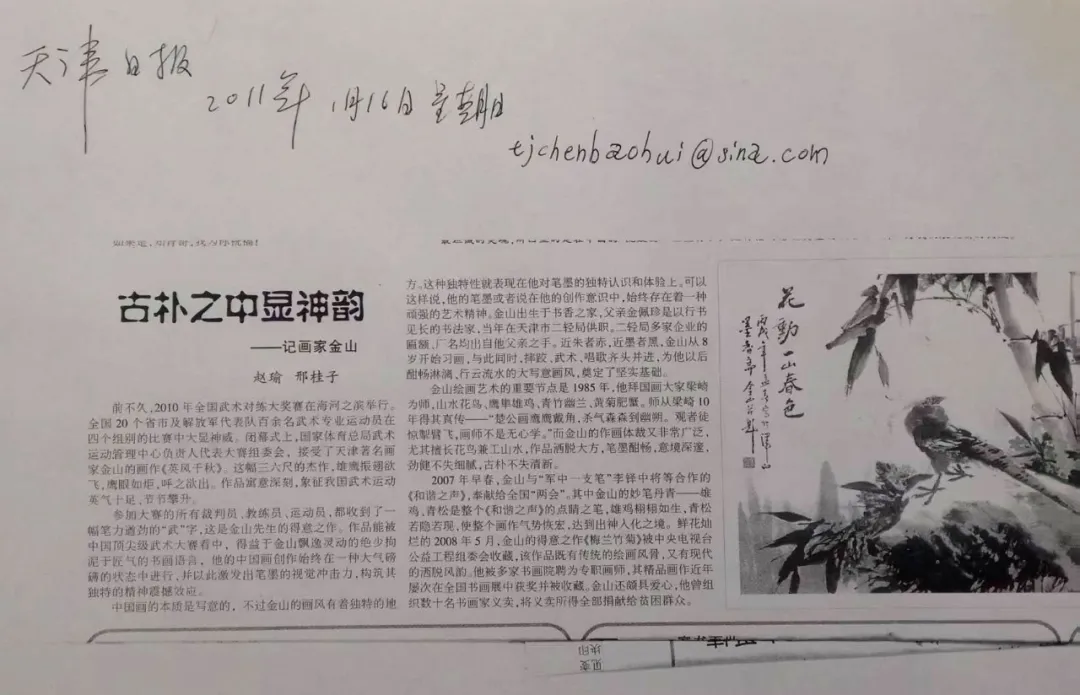 天津日报
2011年 1月16日 星期日
tjchenbaohui@sina.com
古朴之中显神韵
——记画家金山
赵瑜 邢桂子
前不久,2010年全国武术对练大奖赛在海河之滨举行。
全国20个省市及解放军代表队百余名武术专业运动员在
四个组别的比赛中大显神威。闭幕式上,国家体育总局武术
运动管理中心负责人代表大赛组委会,接受了天津著名画
家金山的画作《英风千秋》。这幅三六尺的杰作,雄鹰振翅欲
飞,鹰眼如炬,呼之欲出。作品寓意深刻,象征我国武术运动
英气十足,节节攀升。
参加大赛的所有裁判员、教练员、运动员,都收到了一
幅笔力遒劲的“武”字,这是金山先生的得意之作。作品能被
中国顶尖级武术大赛看中,得益于金山飘逸灵动的绝少拘
泥于匠气的书画语言,他的中国画创作始终在一种大气磅
礴的状态中进行,并以此激发出笔墨的视觉冲击力,构筑其
独特的精神震撼效应。
中国画的本质是写意的,不过金山的画风有着独特的地
方。这种独特性就表现在他对笔墨的独特认识和体验上。可以
这样说,他的笔墨或者说在他的创作意识中,始终存在着一种
顽强的艺术精神。金山出生于书香之家,父亲金佩珍是以行书
见长的书法家,当年在天津市二轻局供职。二轻局多家企业的
匾额、厂名均出自他父亲之手。近朱者赤,近墨者黑,金山从8
岁开始习画,与此同时,摔跤、武术、唱歌齐头并进,为他以后
酣畅淋漓,行云流水的大写意画风,奠定了坚实基础。
金山绘画艺术的重要节点是1985年,他拜国画大家梁崎
为师,山水花鸟、鹰隼雄鸡、青竹幽兰、黄菊肥蟹。师从梁崎10
年得其真传——“楚公画鹰鹰戴角,杀气森森到幽朔。观者徒
惊掣臂飞,画师不是无心学。”而金山的作画体裁又非常广泛,
尤其擅长花鸟兼工山水,作品洒脱大方,笔墨酣畅,意境深邃,
劲健不失细腻,古朴不失清新。
2007年早春,金山与“军中一支笔”李铎中将等合作的
《和谐之声》,奉献给全国“两会”。其中金山的妙笔丹青——雄
鸡,青松是整个《和谐之声》的点睛之笔,雄鸡栩栩如生,青松
若隐若现,使整个画作气势恢宏,达到出神入化之境。鲜花灿
烂的2008年5月,金山的得意之作《梅兰竹菊》被中央电视台
公益工程组委会收藏,该作品既有传统的绘画风骨,又有现代
的洒脱风韵。他被多家书画院聘为专职画师,其精品画作近年
屡次在全国书画展中获奖并被收藏。金山还颇具爱心,他曾组
织数十名书画家义卖,将义卖所得全部捐献给贫困群众。
花动一山春色